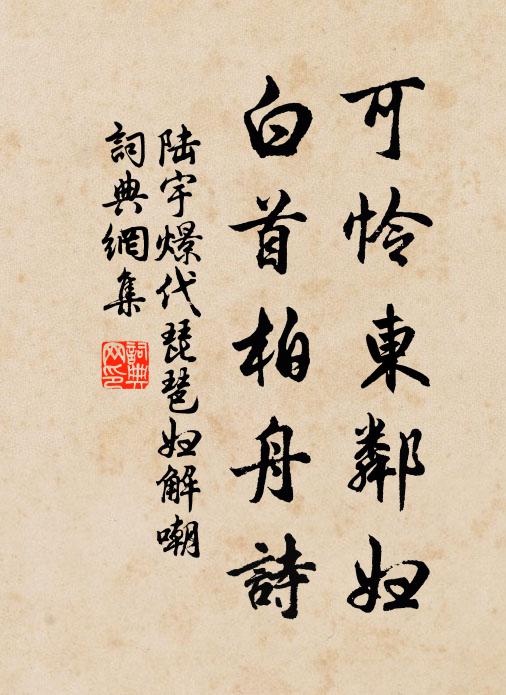 可怜東鄰妇
白首柏舟詩
陆宇燝代琵琶妇解嘲
詞典網集
詞典网印